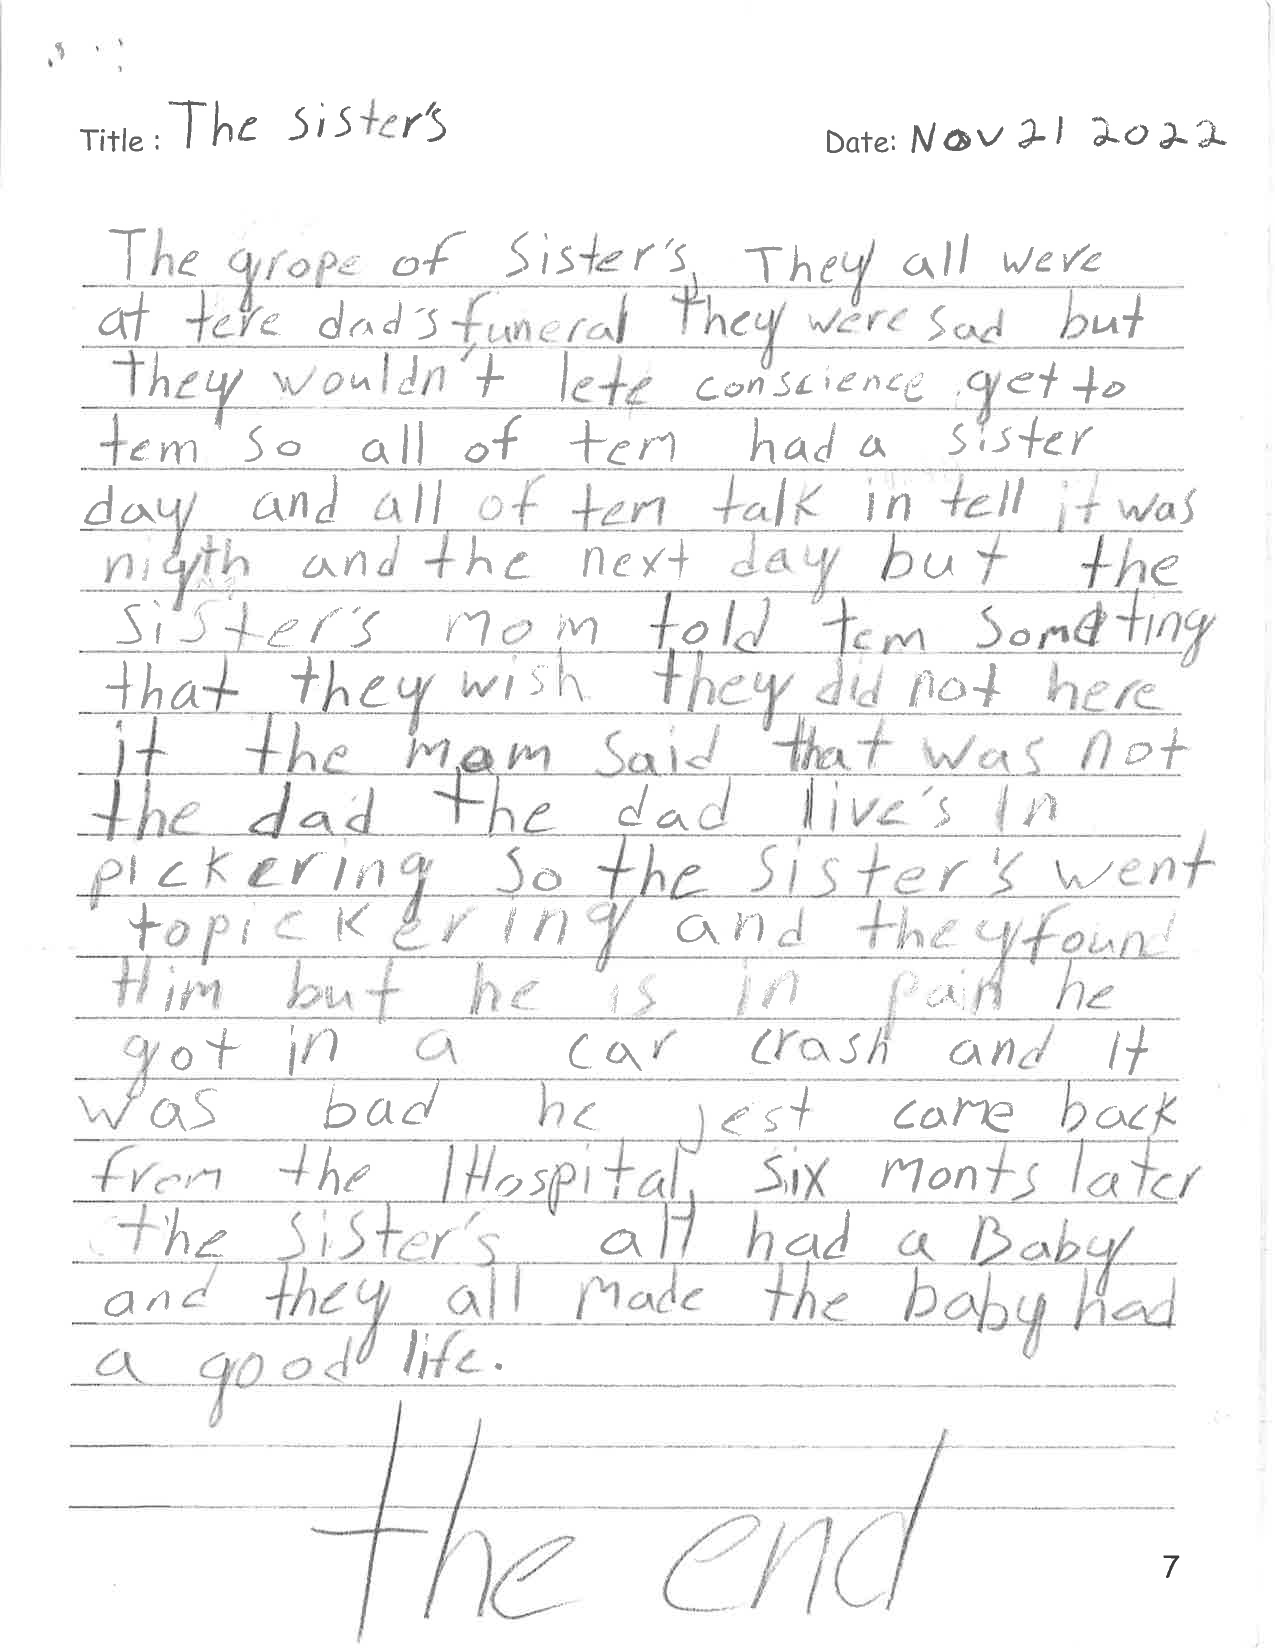 Title : The sister's
Date: Nov 21 2022
The grope of Sister's, They all were
at tere dad's funeral they were sad but
they wouldn't lete conscience get to
tem so all of tem had a sister
day and all of tem talk in tell it was
nigth and the next day but the
sister's mom told tem someting
that they wish they did not here
it the mom said that was not
the dad the dad live's in
pickering so the sister's went
to pickering and they found
Him but he is in pain he
got in a car crash and it
was bad he jest came back
from the Hospital, six monts later
the sister's all had a Baby
and they all made the baby had
a good life.
the end
7